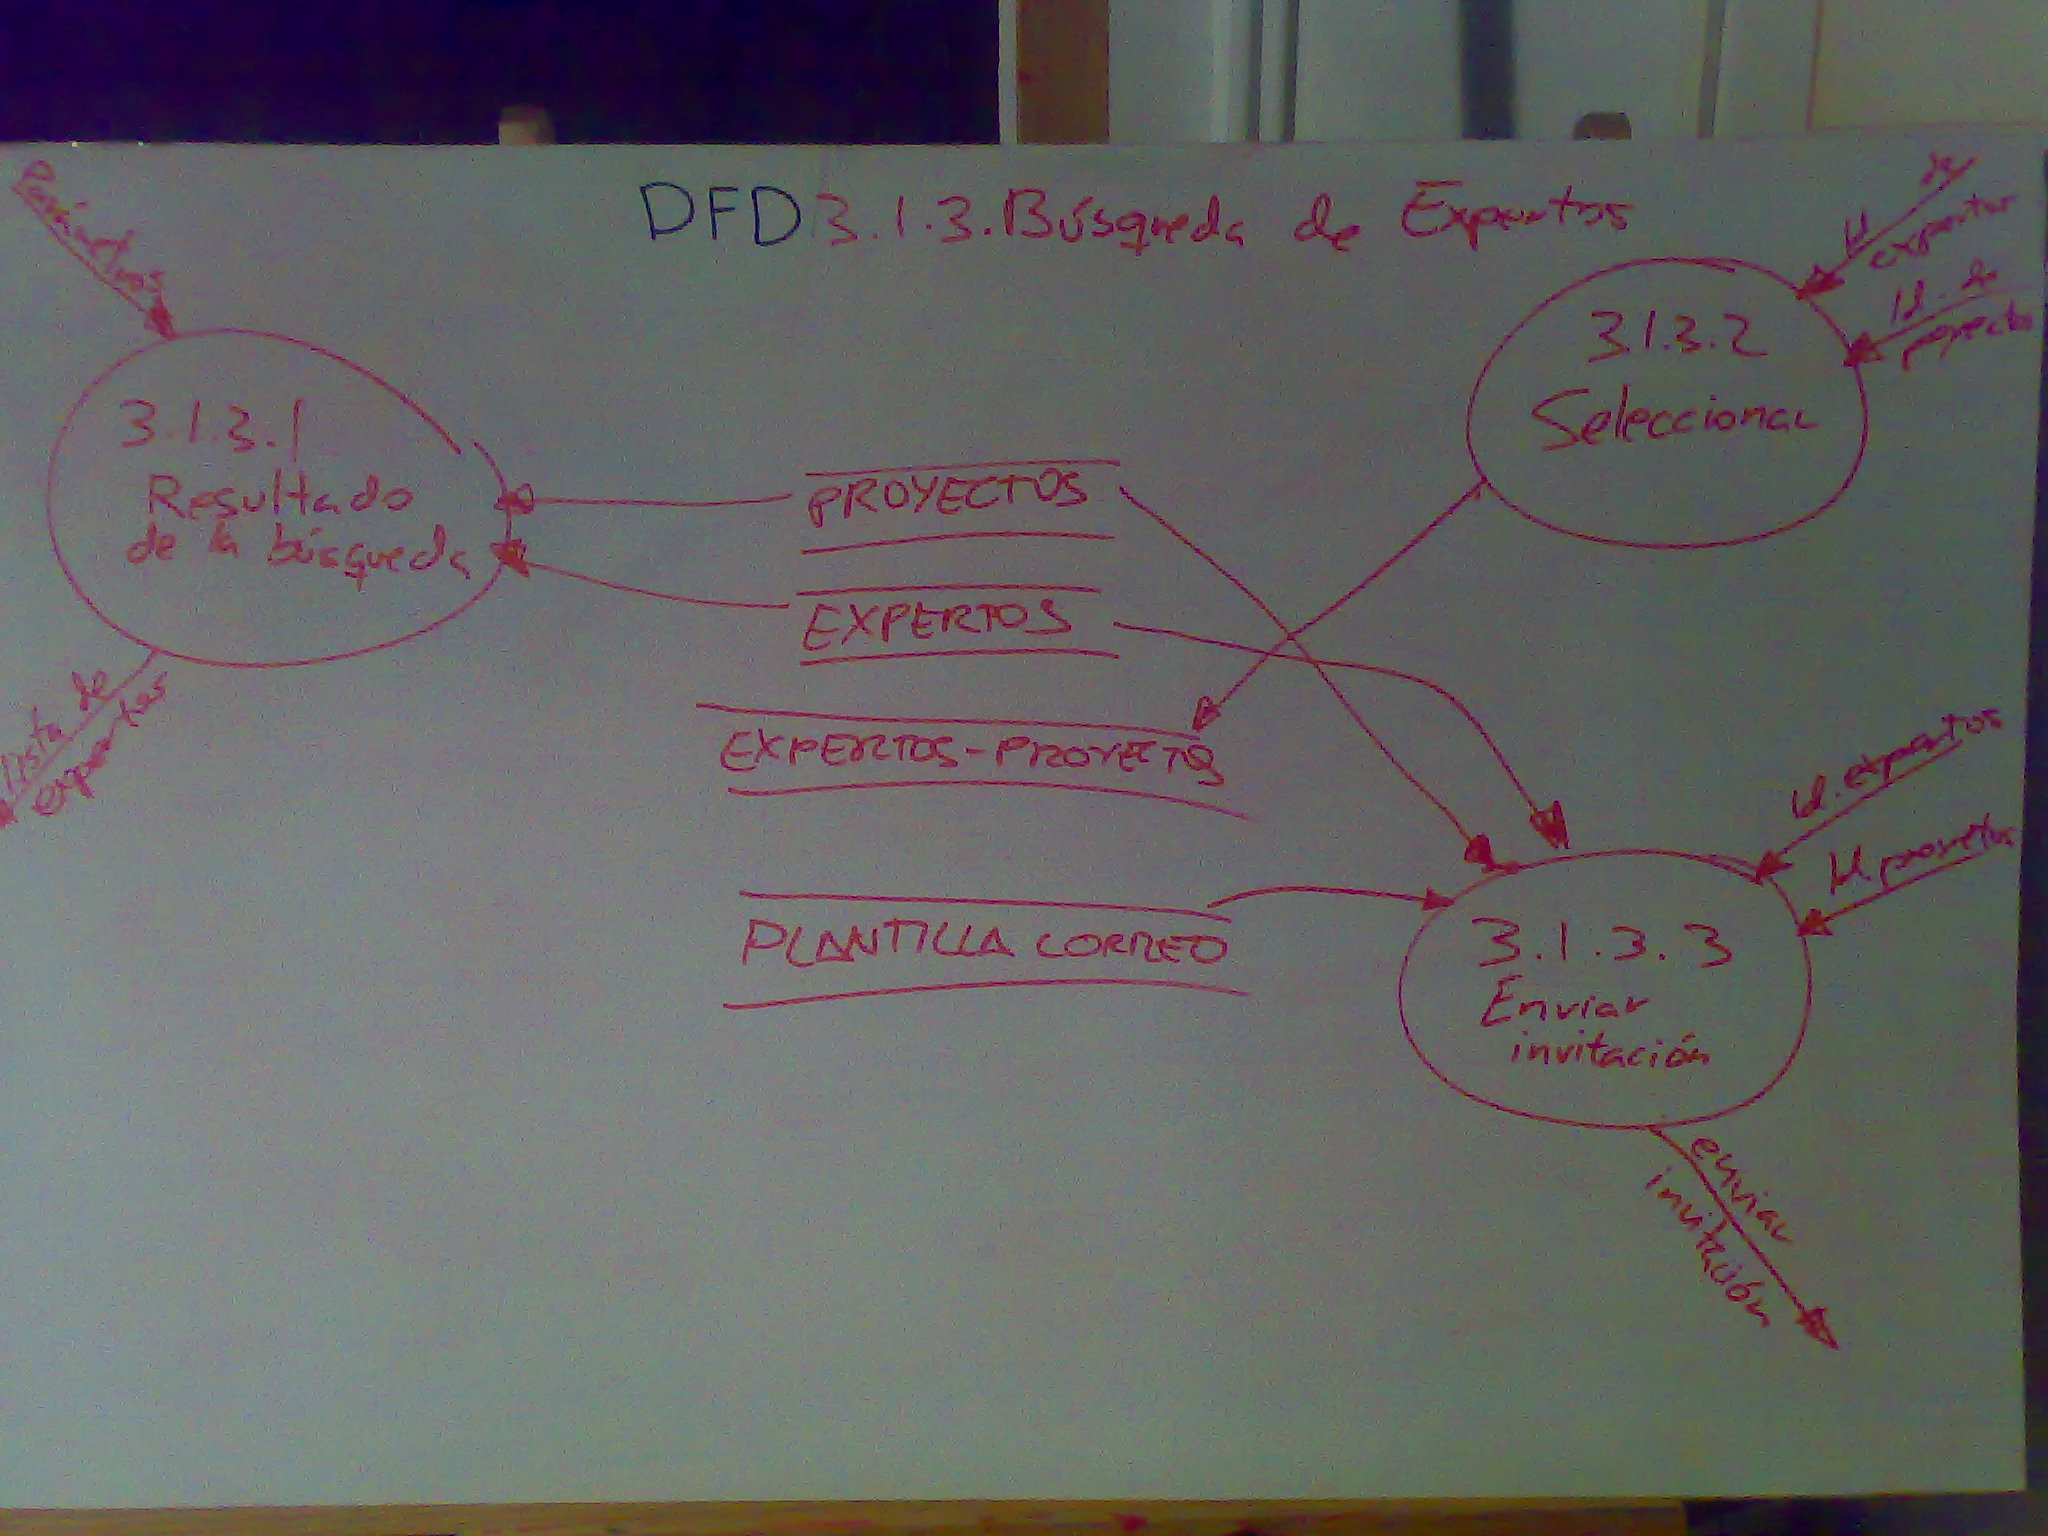 DFD 3.1.3. Búsqueda de Expertos
Parámetros
3.1.3.1
Resultado
de la búsqueda
Lista de
expertos
PROYECTOS
EXPERTOS
EXPERTOS-PROYECTOS
PLANTILLA CORREO
Id de
expertos
Id. de
proyectos
3.1.3.2
Seleccionar
Id. expertos
Id. proyectos
3.1.3.3
Enviar
invitación
enviar
invitación